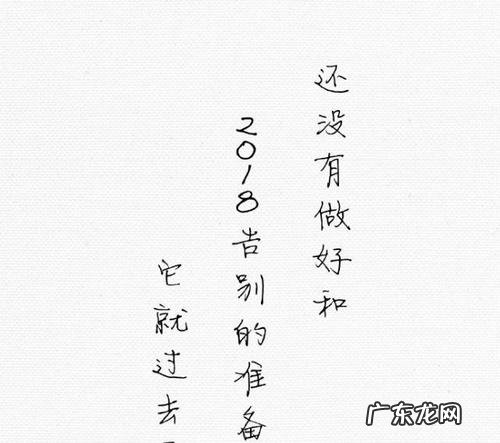 还没有做好和
2018告别的准备
它就过去
广东龙网